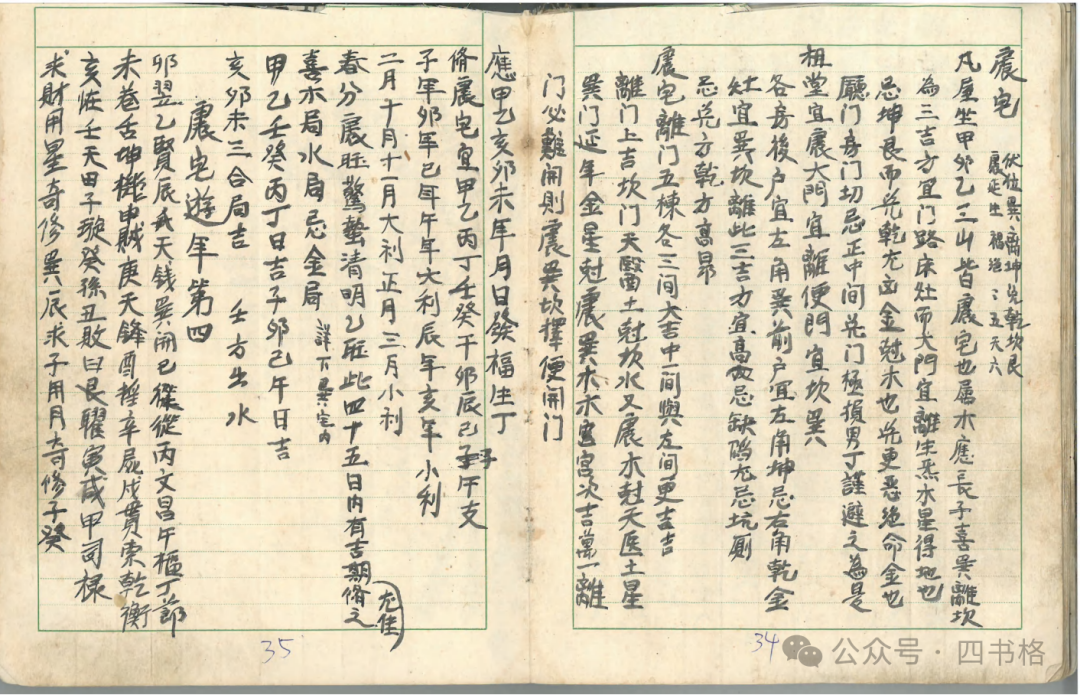 震宅
伏位巽離坤兑乾坎艮
震延生禍絶五天六
凡屋坐甲卯乙三山皆震宅也屬木應長子喜巽離坎
為三吉方宜門路床灶而大門宜離生炁水星得地也
忌坤艮而兑乾尤凶金尅木也兑更惡絶命金也
廳门房门切忌正中間兑门極損男丁謹避之為是
祖堂宜震大门宜離便門宜坎巽
各房後户宜左角巽前户宜左角坤忌右角乾金
灶宜巽坎離此三吉方宜高忌缺陷尤忌坑厠
忌兑方乾方高昂
震宅離门五棟各三间大吉中一间與左间更吉
離门上吉坎门天醫土尅坎水又震木尅天医土星
巽门延年金星尅震巽木木宫宫次吉萬一離
门必難開則震巽坎擇便開门
34
應甲乙亥卯未年月日發福生丁
脩震宅宜甲乙丙丁壬癸干卯辰巳子午支
子年卯年巳年午年大利辰年亥年小利
二月十月十一月大利正月三月小利
春分震旺驚蟄清明乙旺此四十五日内有吉期脩之
尤佳
喜木局水局忌金局
詳下巽宅内
甲乙壬癸丙丁日吉子卯巳午日吉
亥卯未三合局吉 壬方出水
震宅遊年第四
卯翌乙賢辰天錢巽開巳從丙文昌午樞丁節
未卷舌坤申賊庚天鋒酉辛屍戌貫索乾衡
亥恠壬天田子璇癸孫丑敗臼艮耀寅咸甲司禄
求財用星奇修巽辰求子用月奇修子癸
35
公众号·四书格